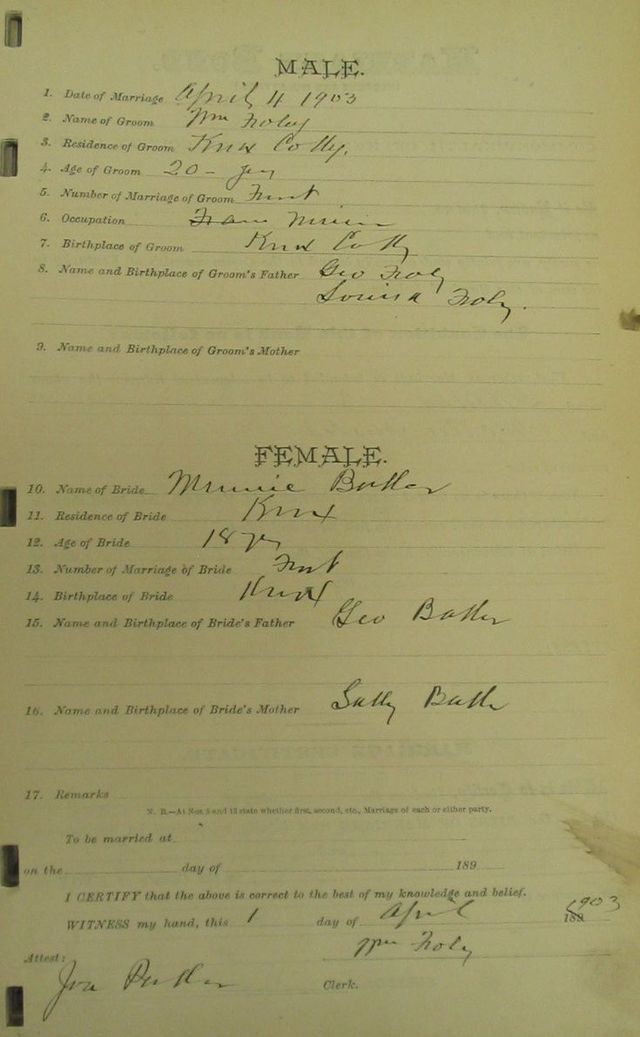 MALE.
1. Date of Marriage April 4 1903
2. Name of Groom Wm Foley
3. Residence of Groom Knox Co Ky.
4. Age of Groom 20 - yrs
5. Number of Marriage of Groom First
6. Occupation
7. Birthplace of Groom Knox Co Ky
8. Name and Birthplace of Groom's Father Geo Foley
Louisa Foley.
9. Name and Birthplace of Groom's Mother
FEMALE.
10. Name of Bride Minnie
11. Residence of Bride Knox
12. Age of Bride 18 yrs
13. Number of Marriage of Bride First
14. Birthplace of Bride Knox
15. Name and Birthplace of Bride's Father Geo
16. Name and Birthplace of Bride's Mother Sally
17. Remarks
N. B.—At Nos. 5 and 13 state whether first, second, etc., Marriage of each or either party.
To be married at
on the day of 189
I CERTIFY that the above is correct to the best of my knowledge and belief.
WITNESS my hand, this 1 day of April 1903
Wm Foley
Attest:
Clerk.